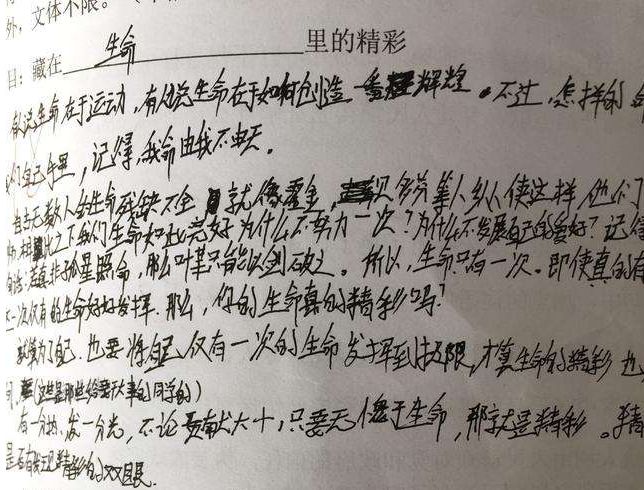 外，文体不限。
目：藏在 生命 里的精彩
有人说生命在于运动，有人说生命在于如何创造辉煌。不过，怎样的
自己手里，记得，我命由我不由天。
当无数人的生命残缺不全，就像霍金，贝多芬 人 使这样 他们
相比之下我们生命如此完好为什么不努力一次？为什么不发展自己的爱好？记
孤星照命，那么叶某只能以剑破之。所以，生命只有一次。即使真的
一次仅有的生命好好发挥。那么，你的生命真的精彩吗？
就算为了自己，也要将自己仅有一次的生命发挥到极限，才算生命的精彩 也
同，（这些是那些给 大事的同学的）
有一分热，发一分光，不论贡献大小，只要无愧于生命，那就是精彩。
是否有发现精彩的双眼.